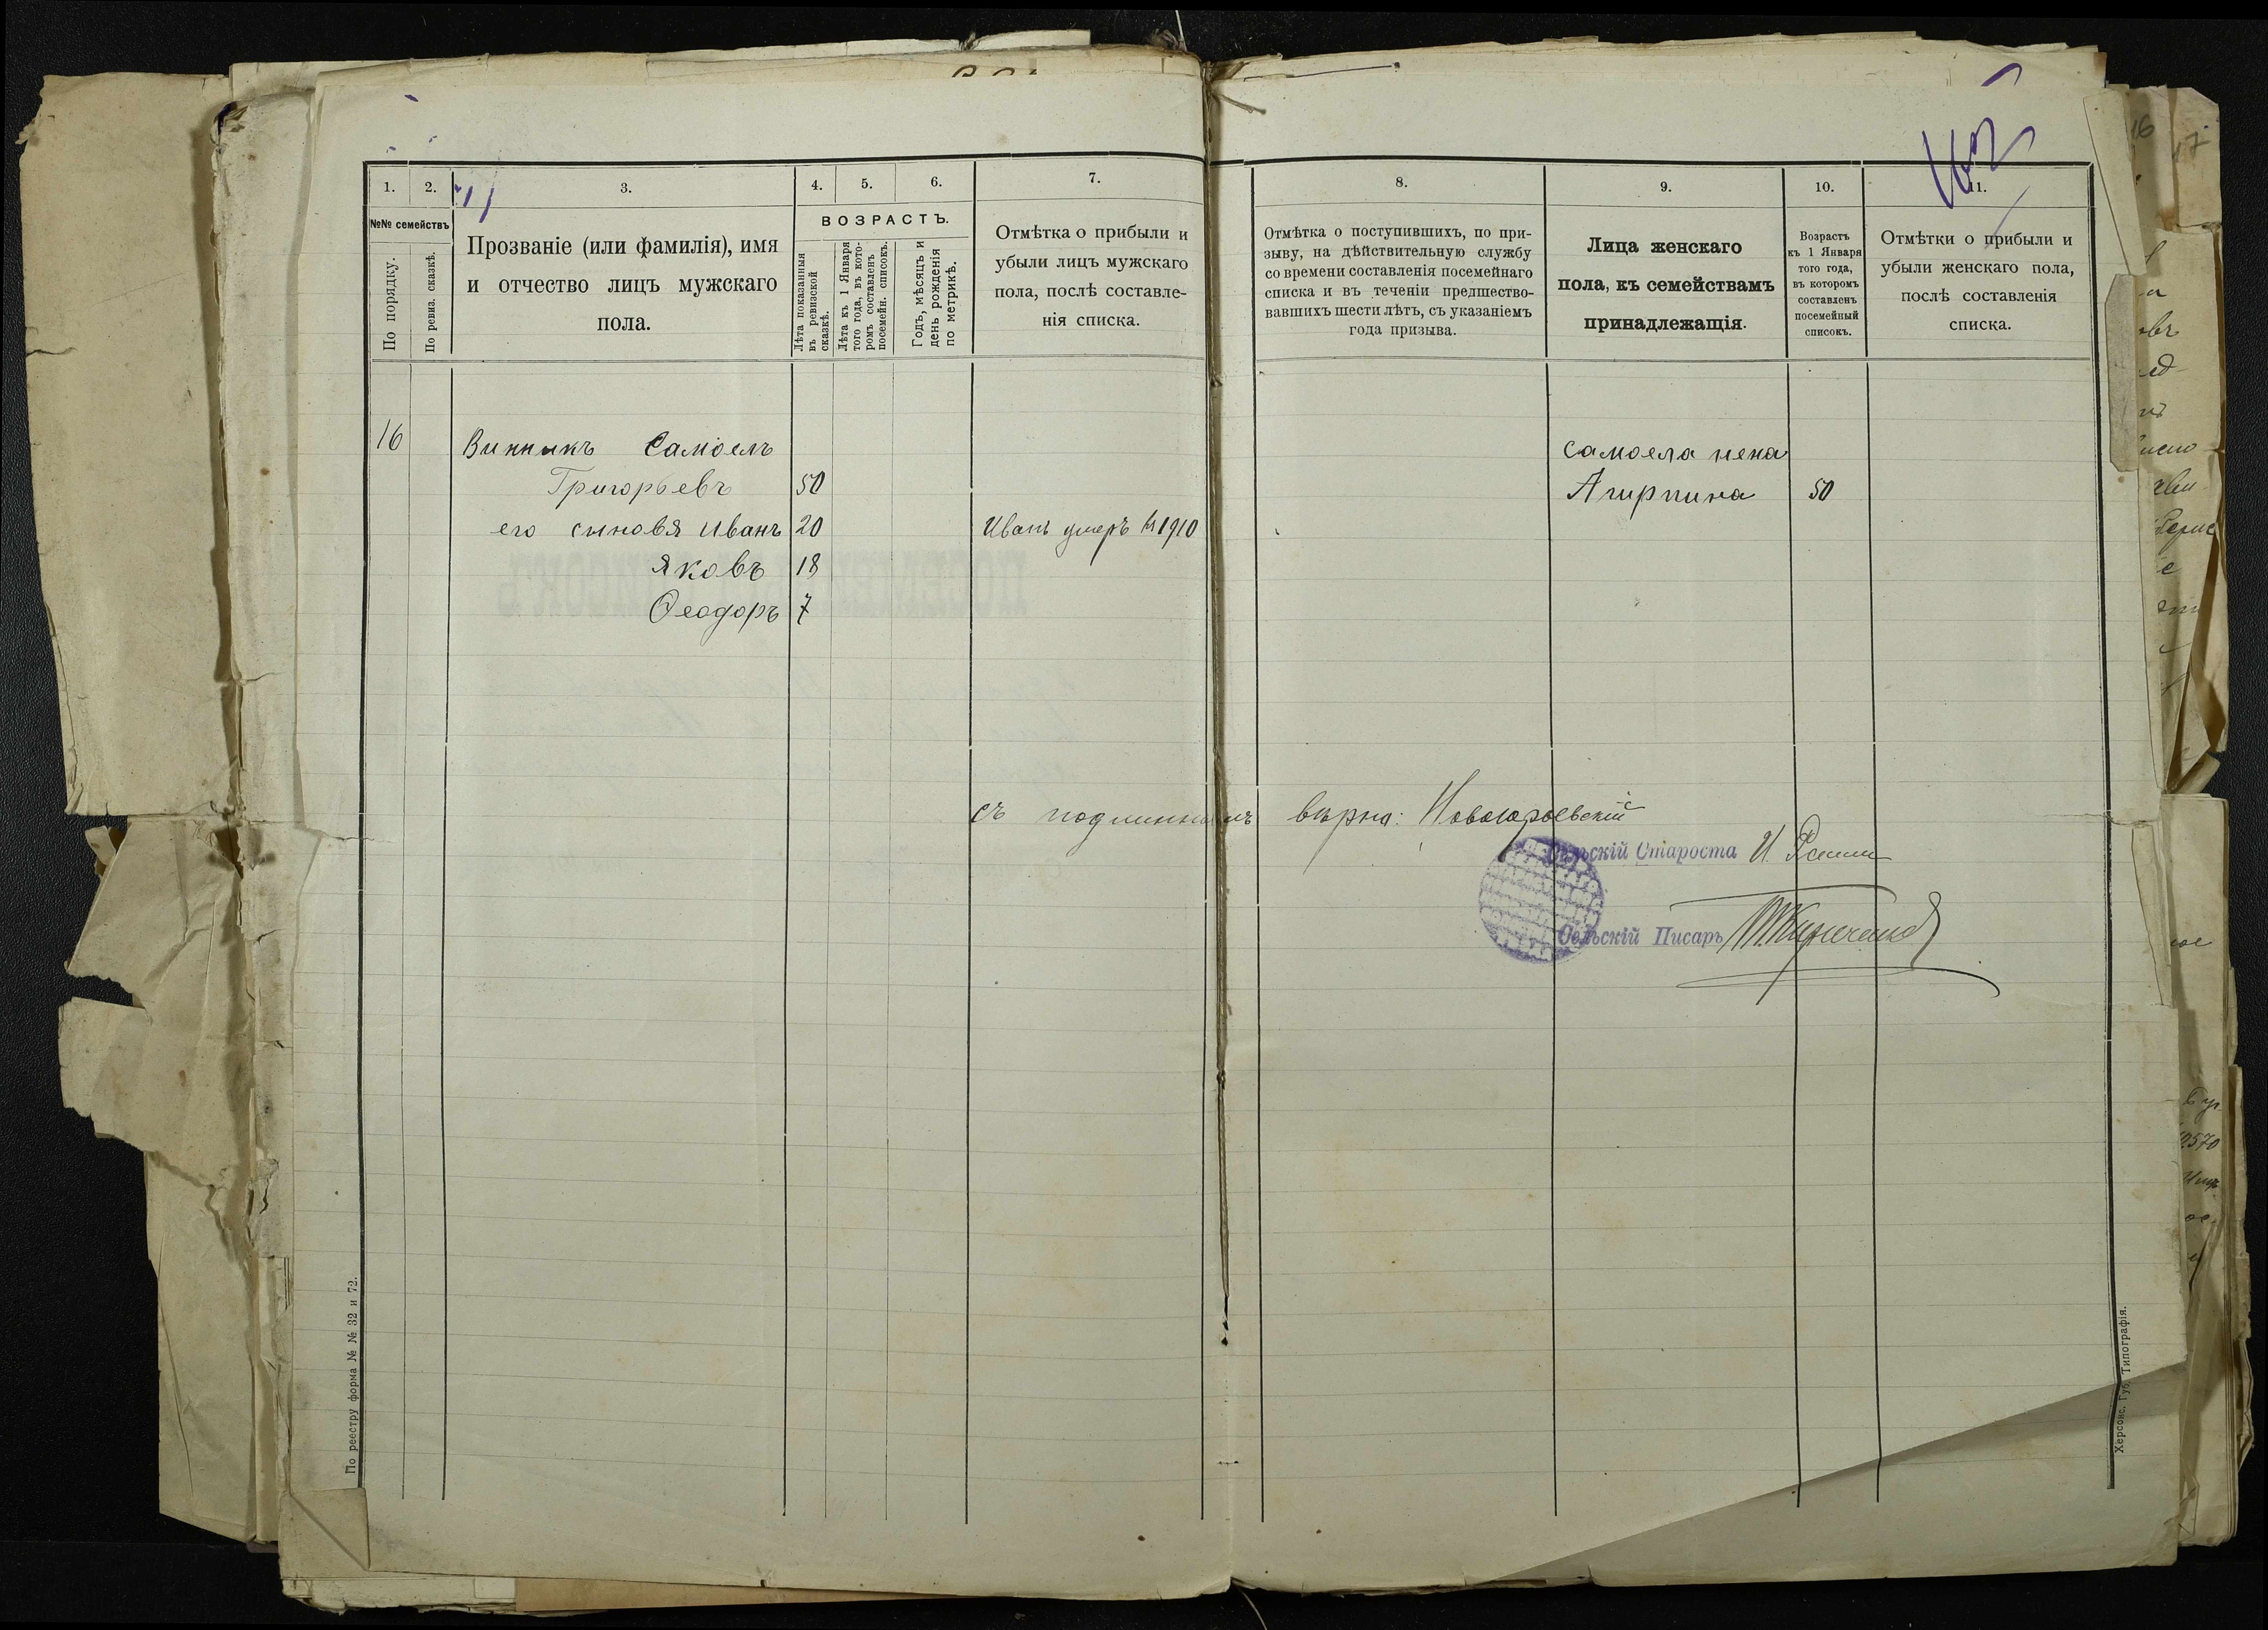 1.
2.
3.
4.
5.
6.
7.
№№ семействъ
По порядку.
По ревиз. сказкѣ.
Прозваніе (или фамилія), имя
и отчество лицъ мужскаго
пола.
ВОЗРАСТЪ.
Лѣта показанныя
въ ревизской
сказкѣ.
Лѣта къ 1 Января
того года, въ кото-
ромъ составленъ
посемейн. списокъ.
Годъ, мѣсяцъ и
день рожденія
по метрикѣ.
Отмѣтка о прибыли и
убыли лицъ мужскаго
пола, послѣ составле-
нія списка.
16
Винникъ Самоелъ
Григорьевъ 50
его сыновя Иванъ 20
Иванъ умеръ въ 1910
Яковъ 18
Ѳеодоръ 7
По реестру форма № № 32 и 72.
8.
9.
10.
11.
Отмѣтка о поступившихъ, по при-
зыву, на дѣйствительную службу
со времени составленія посемейнаго
списка и въ теченіи предшество-
вавшихъ шести лѣтъ, съ указаніемъ
года призыва.
Лица женскаго
пола, къ семействамъ
принадлежащія.
Возрастъ
къ 1 Января
того года,
въ которомъ
составленъ
посемейный
списокъ.
Отмѣтки о прибыли и
убыли женскаго пола,
послѣ составленія
списка.
Самоела жена
Агирпина 50
съ подлиннымъ вѣрно: Новоюрьевскій
Сельскій Староста И.
Сельскій Писарь
Херсонс. Губ. Типографія.
16
17